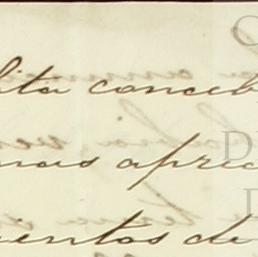 lita conceb
mais aprec
mentos de